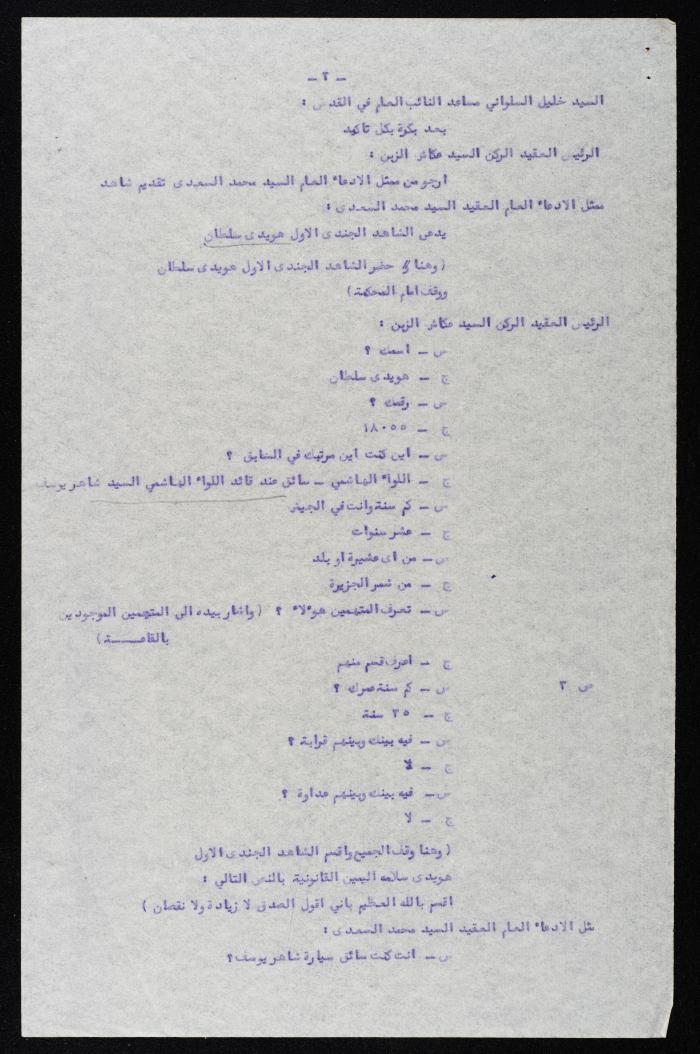 - ٢ -
السيد خليل السلواني مساعد النائب العام في القدس :
بعد بكرة بكل تاكيد
الرئيس العقيد الركن السيد عكاش الزبن :
ارجو من ممثل الادعاء العام السيد محمد السعدى تقديم شاهد
ممثل الادعاء العام العقيد السيد محمد السعدى :
يدعى الشاهد الجندى الاول هويدى سلطان
( وهنا حضر الشاهد الجندى الاول هويدى سلطان
ووقف امام المحكمة )
الرئيس العقيد الركن السيد عكاش الزبن :
س - اسمك ؟
ج - هويدى سلطان
س - رقمك ؟
ج - ١٨٠٥٥
س - اين كنت اين مرتبك في السابق ؟
ج - اللواء الهاشمي - سائق عند قائد اللواء الهاشمي السيد شاهر يوسف
س - كم سنة وانت في الجيش
ج - عشر سنوات
س - من اى عشيرة او بلد
ج - من شمر الجزيرة
س - تعرف المتهمين هوءلاء ؟ ( واشار بيده الى المتهمين الموجودين
بالقاعـــــة )
ج - اعرف قسم منهم
س - كم سنة عمرك ؟
ص ٣
ج - ٣٥ سنة
س - فيه بينك وبينهم قرابة ؟
ج - لا
س - فيه بينك وبينهم عداوة ؟
ج - لا
( وهنا وقف الجميع واقسم الشاهد الجندى الاول
هويدى القانونية بالنص التالي :
اقسم بالله العظيم باني اقول الصدق لا زيادة ولا نقصان )
مثل الادعاء العام العقيد السيد محمد السعدى :
س - انت كنت سائق سيارة شاهر يوسف ؟